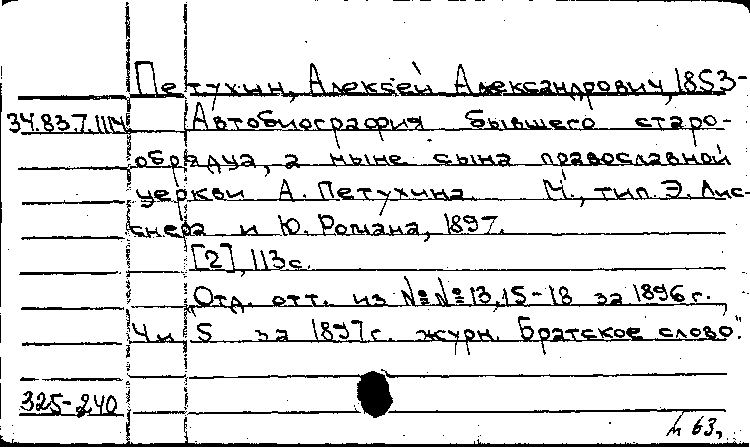 Петухин, Алексей Александрович, 1853-
34.83.7.1114 Автобиография бывшего старо-
обрядца, а ныне сына православной
церкви А. Петухина. М., тип. Э. Лис-
снера и Ю. Романа, 1897.
[2], 113 с.
Отд. отт. из №№ 13, 15-18 за 1896 г.,
4 и 5 за 1897 г. журн. "Братское слово".
325-240
63,